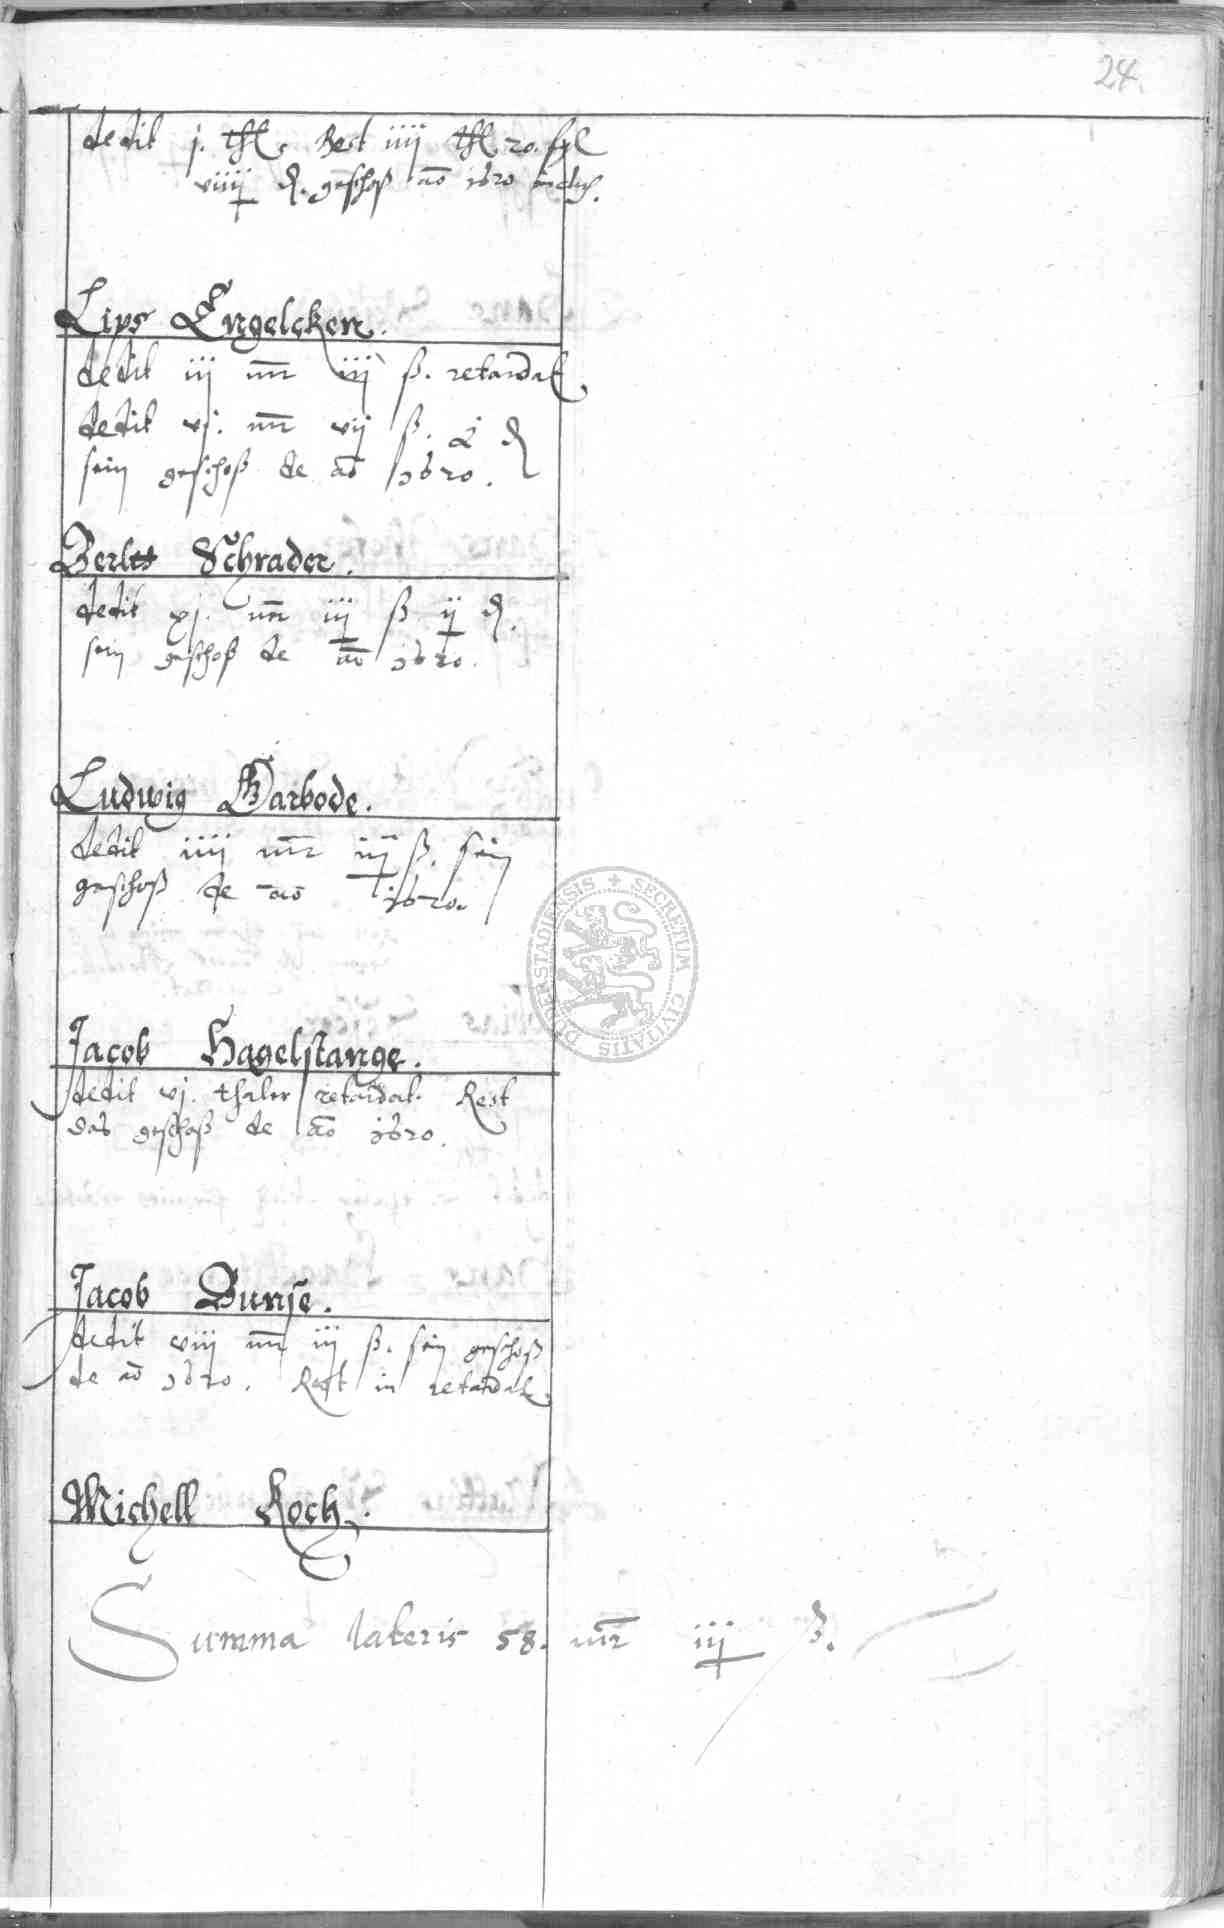 24.
dedit j. thl. Rest iiij thl. 20. ßl
viiij d. geschoß ao 1620
Lips Engelcken.
dedit iij mr iij ß. retardat
dedit vj. mr vij ß. d
sein geschoß de ao 1620.
Berltt Schrader.
dedit xj. mr iij ß ij d.
sein geschoß de ao 1620.
Ludwig Garbode.
dedit iiij mr iij ß. sein
geschoß de ao 1620.
SECRETUM CIVITATIS DUDERSTADIENSIS
Jacob Hagelstange.
dedit vj. thaler retardat. Rest
das geschoß de ao 1620.
Jacob Bunse.
dedit viij mr iij ß. sein geschoß
de ao 1620. Rest in retardat
Michell Koch.
Summa lateris 58. mr iij ß.